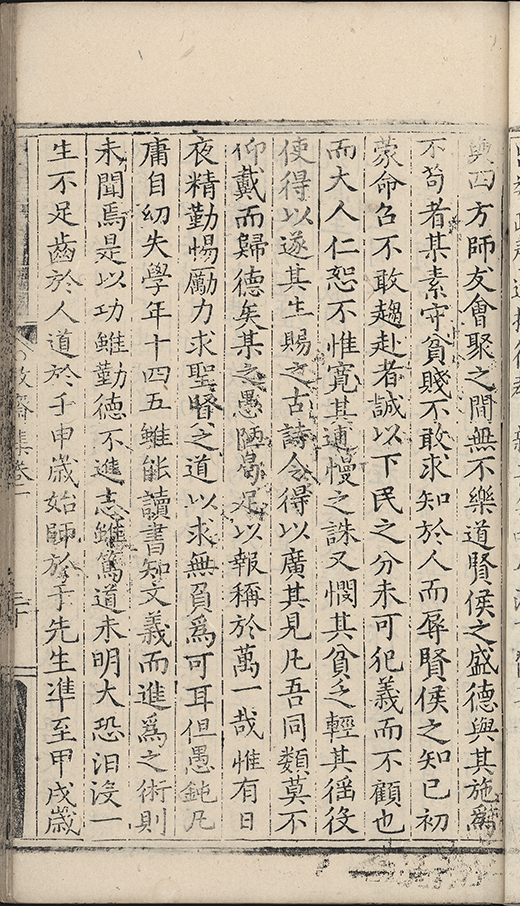 與四方師友會聚之間無不樂道賢侯之盛德與其施為
不苟者某素守貧賤不敢求知於人而辱賢侯之知已初
蒙命召不敢趨赴者誠以下民之分未可犯義而不顧也
而大人仁恕不惟寬其逋慢之誅又憫其貧乏輕其徭役
使得以遂其生賜之古詩令得以廣其見凡吾同類莫不
仰戴而歸德矣某之愚陋曷足以報稱於萬一哉惟有日
夜精勤惕勵力求聖賢之道以求無負為可耳但愚鈍凡
庸自幼失學年十四五雖能讀書知文義而進為之術則
未聞焉是以功雖勤德不進志雖篤道未明大恐汨沒一
生不足齒於人道於壬申歲始師於于先生準至甲戌歲
敬齋集卷一
三十